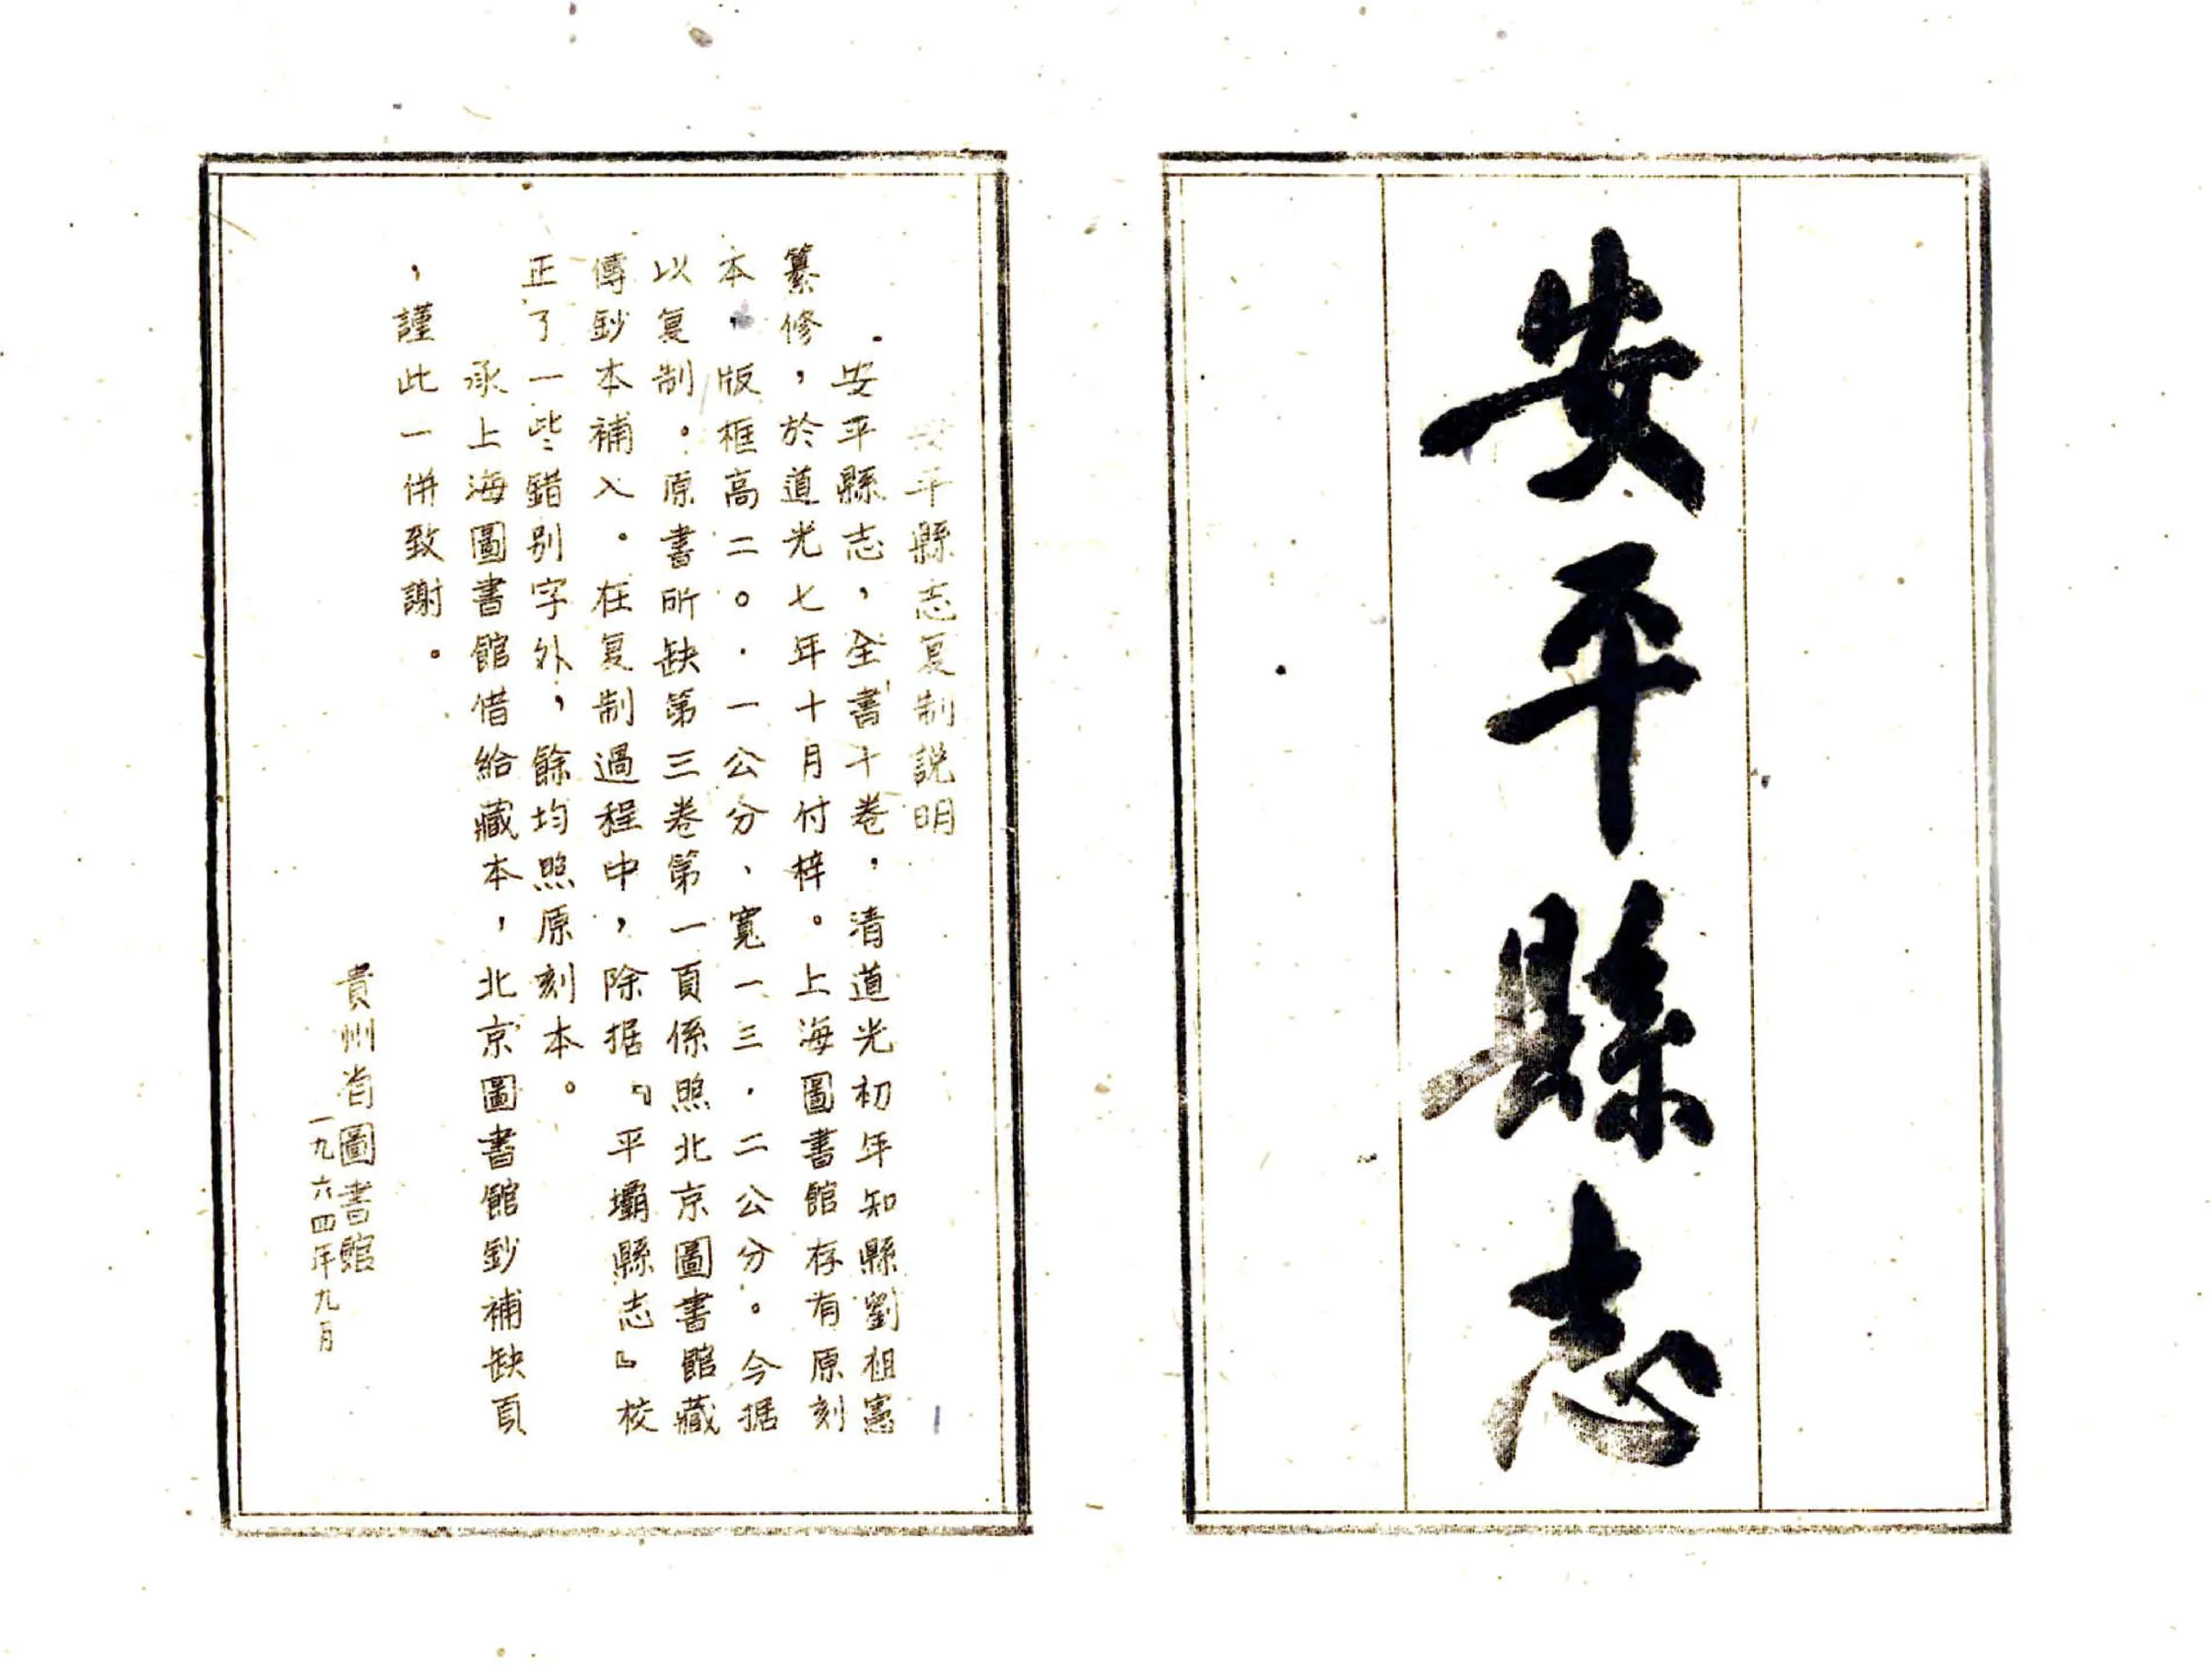 安平縣志
安平縣志复制説明
安平縣志，全書十卷，清道光初年知縣劉祖憲
纂修，於道光七年十月付梓。上海圖書館存有原刻
本，版框高二〇．一公分、寬一三．二公分。今据
以复制。原書所缺第三卷第一頁係照北京圖書館藏
傳鈔本補入。在复制過程中，除据『平壩縣志』校
正了一些錯别字外，餘均照原刻本。
承上海圖書館借給藏本，北京圖書館鈔補缺頁
，謹此一併致謝。
貴州省圖書館
一九六四年九月